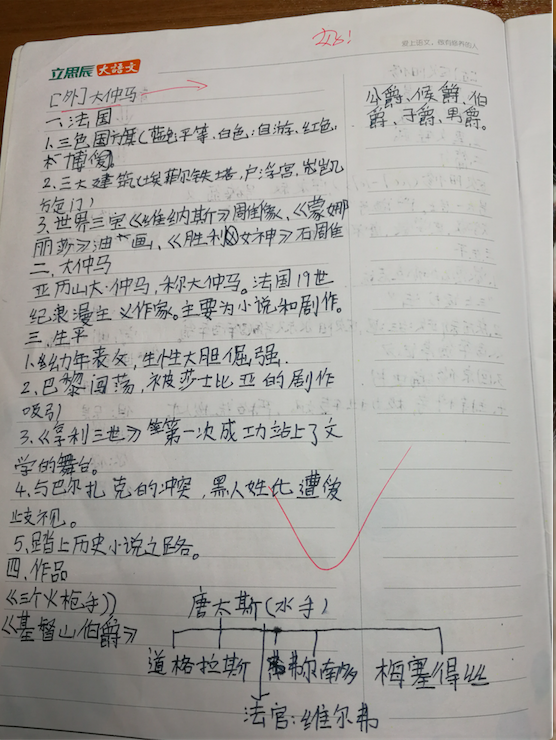 爱上语文,做有修养的人
立思辰大语文
[外]大仲马
一、法国
1.三色国旗(蓝色:平等.白色:自游.红色:
本博爱)
2.三大建筑(埃菲尔铁塔.卢浮宫.凯
方旋门)
3.世界三宝《维纳斯》周隹像、《蒙娜
丽莎》油画、《胜利女神》石周隹
二、大仲马
亚历山大·仲马,称大仲马。法国19世
纪浪漫主义作家。主要为小说和剧作。
三、生平
1.幼年丧父,生性大胆倔强.
2.巴黎闯荡,被莎士比亚的剧作
吸引
3.《享利三世》第一次成功站上了文
学的舞台。
4.与巴尔扎克的冲突,黑人姓 遭受
歧视。
5.踏上历史小说之路。
四、作品
《三个火枪手》
《基督山伯爵》
唐太斯(水手)
道格拉斯 弗尔南多 梅塞得丝
法官:维尔弗
公爵、候爵、伯
爵、子爵、男爵。